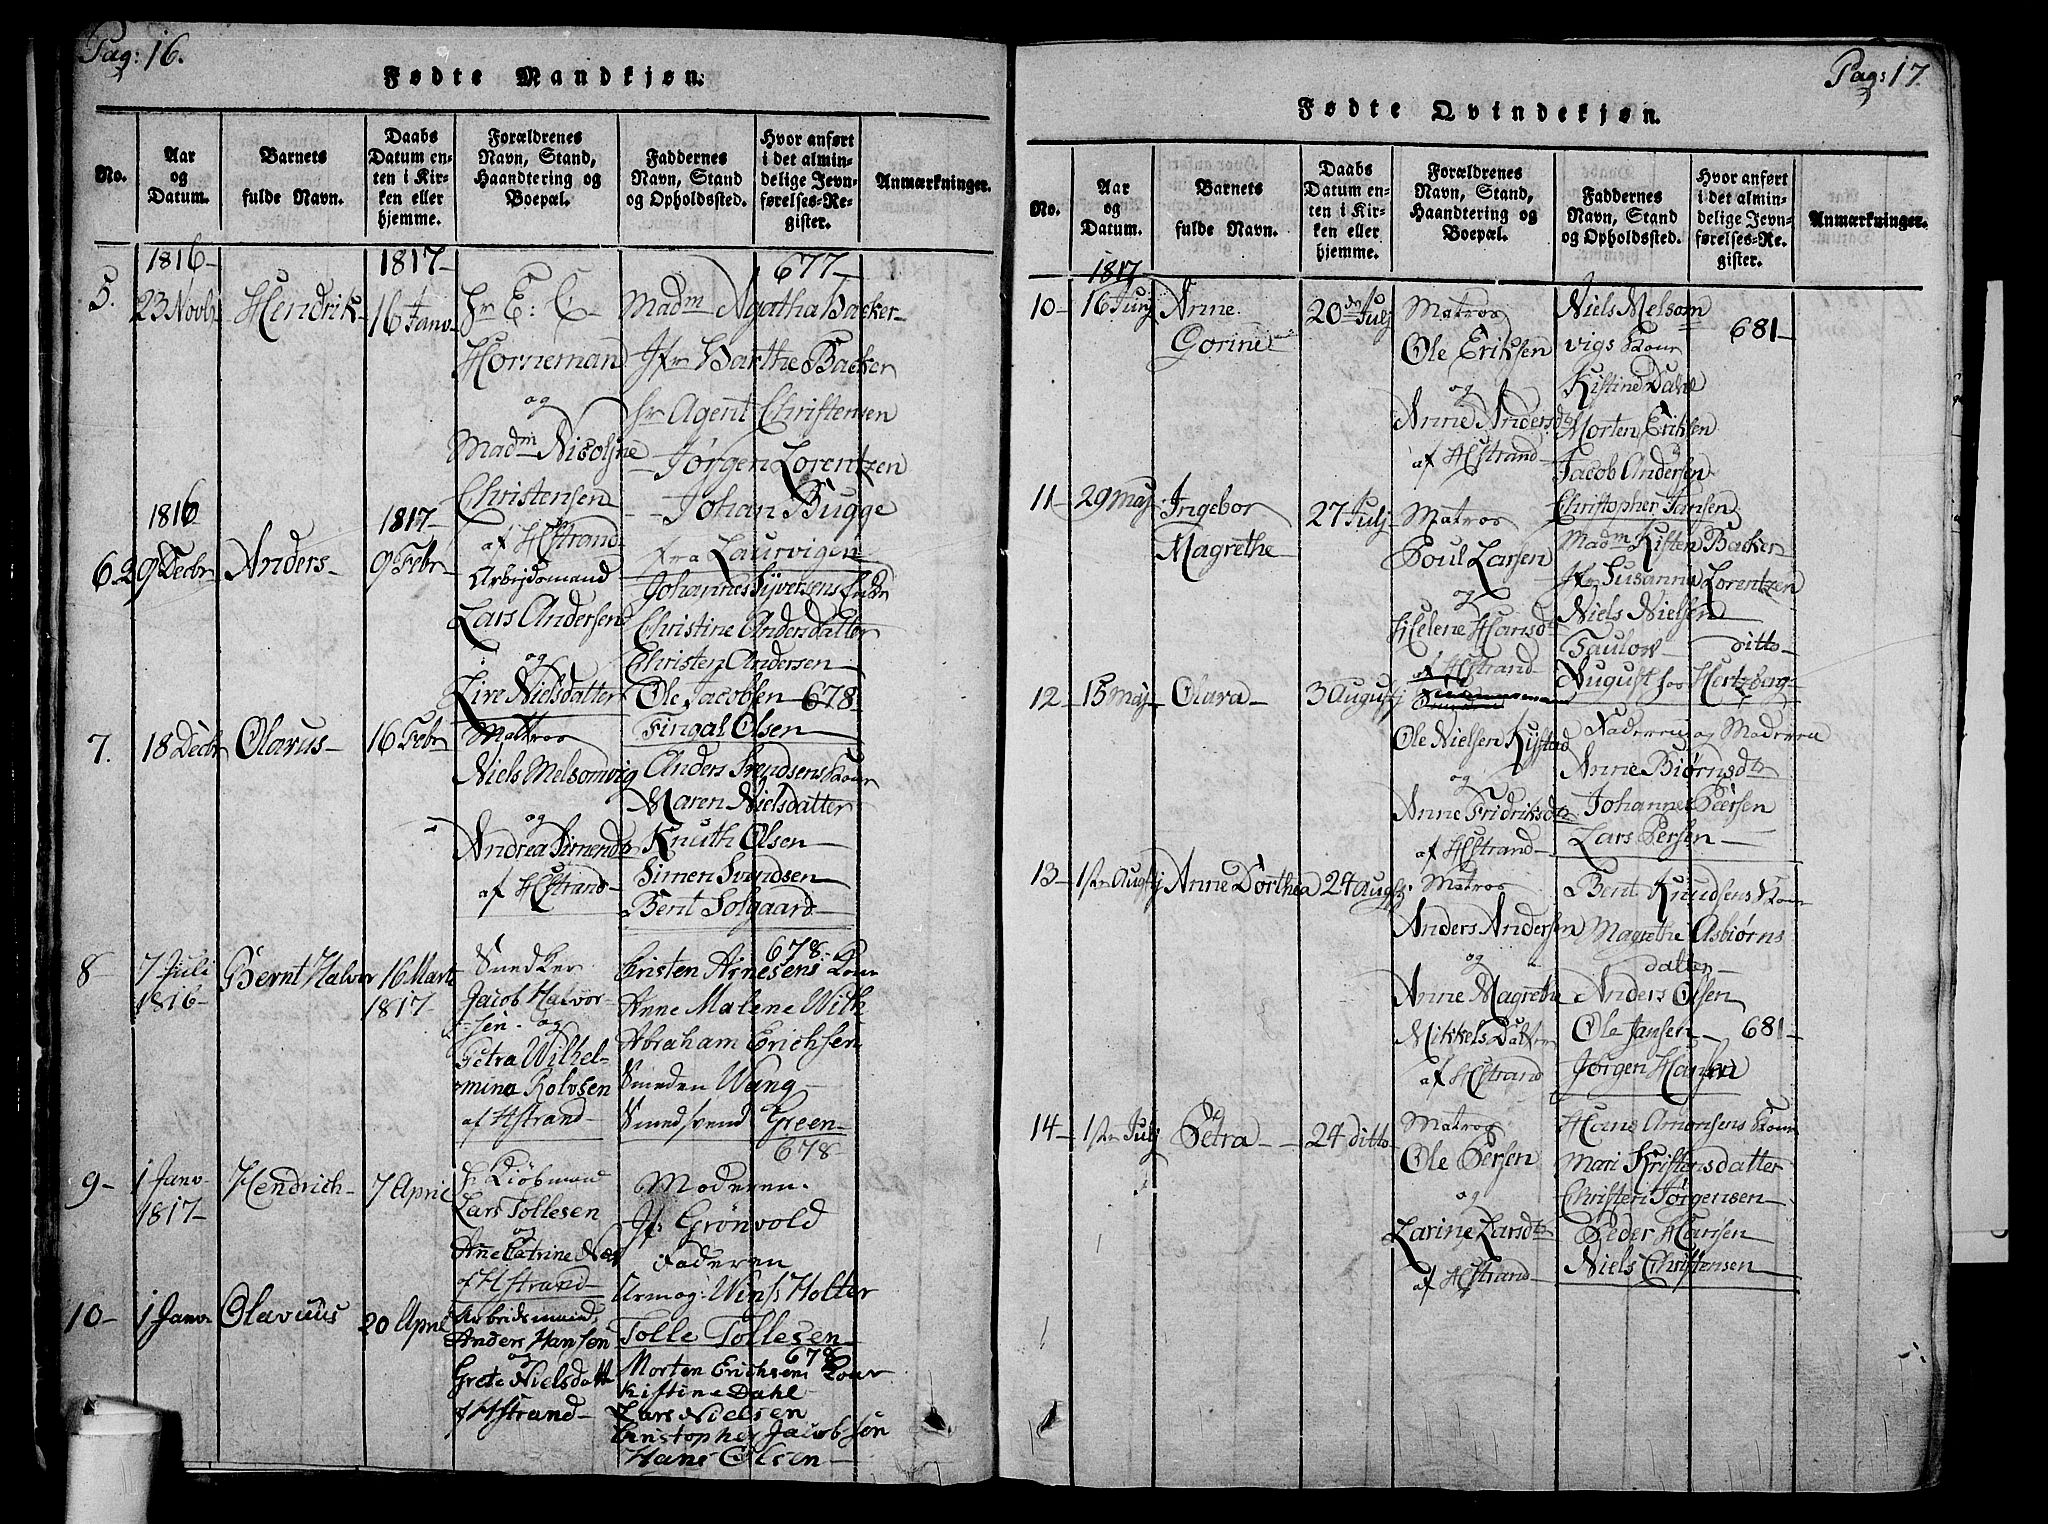 Pag: 16.
Fødte Mandkjøn.
No.
Aar
og
Datum.
Barnets
fulde Navn.
Daabs
Datum en-
ten i Kir-
ken eller
hjemme.
Forældrenes
Navn, Stand,
Haandtering og
Boepæl.
Faddernes
Navn, Stand
og Opholdssted.
Hvor anført
i det almin-
delige Jevn-
førelses-Re-
gister.
Anmærkninger.
5.
1816-
23 Novbr
Hendrik-
1817-
16 Janv-
Hr E: C-
Horneman
og
Madm Nicoljne
Christensen
af HStrand-
677-
Madm Agatha Backer-
Jfr Barthe Backer
Hr Agent Christensen
- Jørgen Lorentzen
- Johan Bugge
fra Laurvigen
6
1816
29 Decbr
Anders-
1817-
9 Febr-
Arbejdsmand
Lars Andersen
og
Lire Nielsdatter
Johannes Syversens
Christine Andersdatter
Christen Andersen
Ole Jacobsen - 678-
Fingal Olsen
7.
18 Decbr
Olavus-
16 Febr
Matros
Niels Melsomvig
og
Andrea Simensdtr
af HStrand-
Anders Svendsens Kone
Maren Nielsdatter
Knuth Olsen-
Simen Svendsen
Bent Solgaard-
8-
7 Juli
1816-
Bernt Halvor
16 Marti
1817-
Snedker
Jacob Halvor-
sen. og
Petra Wilhel-
mina Rolvsen
af HStrand-
678-
Cristen Arnesens Kone
Anne Malene With
Abraham Erichsen
Smeden Wang-
Smedsvend Green-
678-
9-
1 Janv-
1817-
Hendrich-
7 April
Hr Kiöbmand
Lars Tollesen
og
Ane Catrine
af HStrand-
Moderen.
Jfr Grönvold
Faderen
Holter
Tolle Tollesen-
10-
1 Janv-
Olavuus
20 April
Arbeidsmand
Anders Hansen
og
Grete Nielsdatt
af HStrand-
678
Morten Erichsens Kone
Kistine Dahl
Lars Nielsen
Christopher Jacobsøn
Hans Olsen-
Pag: 17.
Fødte Qvindekjøn.
No.
Aar
og
Datum.
Barnets
fulde Navn.
Daabs
Datum en-
ten i Kir-
ken eller
hjemme.
Forældrenes
Navn, Stand,
Haandtering og
Boepæl.
Faddernes
Navn, Stand
og Opholdssted.
Hvor anført
i det almin-
delige Jevn-
førelses-Re-
gister.
Anmærkninger.
10-
1817
16 Junj
Anne
Gorine
20de Julj
Matros
Ole Eriksen
og
Anne Andersdtr
af HStrand-
Niels Melsom
vigs Kone
Kistine Dahl
Morten Eriksen
Jacob Andersen
681-
11-
29 Maj
Ingebor
Magrethe
27 Julj
Matros
Poul Larsen
og
Helene Hansdtr
af HStrand-
Christopher Jansen
Madm Kisten Backer
Jfr Susanna Lorentzen
Niels Nielsen
ditto-
August Hertzberg-
12-
15 Maj-
Olava-
3 Augustj
Ole Nielsen Kistad
og
Anne Fridriksdtr
af HStrand-
Faderen og Moderen
Anne Biørnsdtr
Johannes Peersen
Lars Persen-
13-
1ste Augstj
Anne Dorthea
24 Augstj.
Matros
Anders Andersen
og
Anne Magrethe
Mikkels Datter
af HStrand
Bent Knudsens Kone
Magrethe Asbiørns
datter-
Anders Olsen
Ole Jansen- 681-
Jørgen Hansen
14-
1ste Julj
Petra-
24 ditto
Matros
Ole Persen
og
Larine Larsdtr
af HStrand-
Hans Amonsens Kone
Mari Kristensdatter
Christen Jørgensen-
Peder Hansen
Niels Christensen